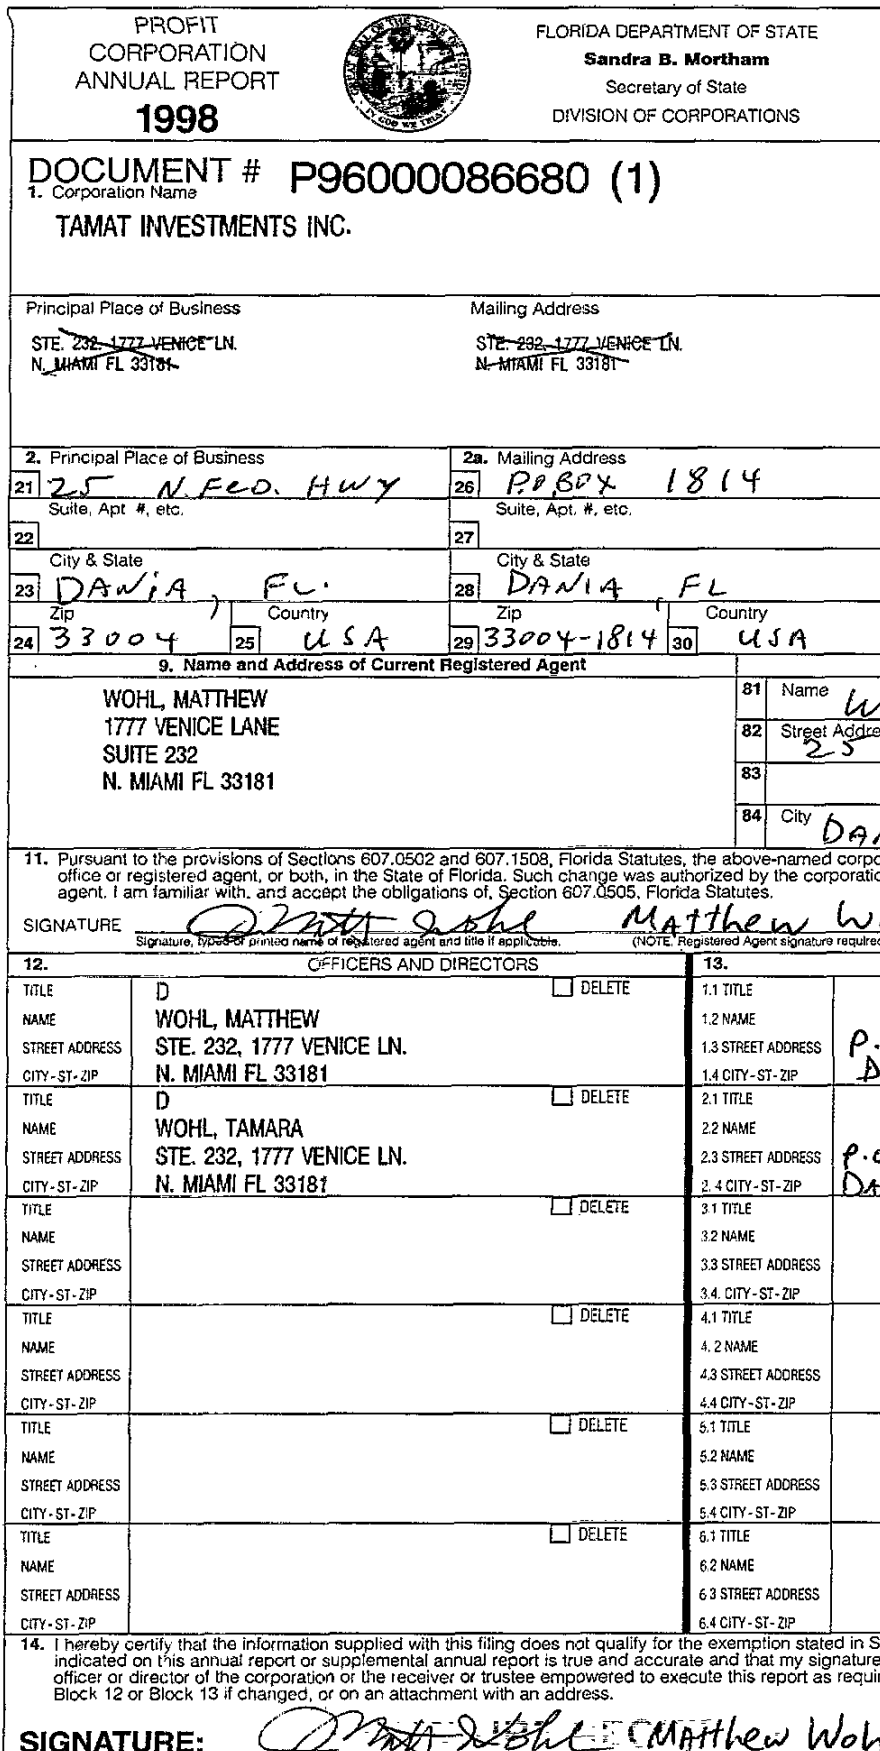 PROFIT
CORPORATION
ANNUAL REPORT
1998
FLORIDA DEPARTMENT OF STATE
Sandra B. Mortham
Secretary of State
DIVISION OF CORPORATIONS
DOCUMENT # P96000086680 (1)
1. Corporation Name
TAMAT INVESTMENTS INC.
Principal Place of Business
Mailing Address
STE. 232, 1777 VENICE LN.
N. MIAMI FL 33181
STE. 232, 1777 VENICE LN.
N. MIAMI FL 33181
2. Principal Place of Business
2a. Mailing Address
21 25 N. FED. HWY
26 P.O. BOX 1814
Suite, Apt #, etc.
Suite, Apt. #, etc.
22
27
City & State
City & State
23 DANIA, FL.
28 DANIA, FL
Zip Country
Zip Country
24 33004 25 USA
29 33004-1814 30 USA
9. Name and Address of Current Registered Agent
WOHL, MATTHEW
1777 VENICE LANE
SUITE 232
N. MIAMI FL 33181
81 Name W
82 Street Addre
25
83
84 City DA
11. Pursuant to the provisions of Sections 607.0502 and 607.1508, Florida Statutes, the above-named corpo
office or registered agent, or both, in the State of Florida. Such change was authorized by the corporatio
agent. I am familiar with, and accept the obligations of, Section 607.0505, Florida Statutes.
SIGNATURE Matt Wohl Matthew W
Signature, typed or printed name of registered agent and title if applicable.
(NOTE: Registered Agent signature required
12. OFFICERS AND DIRECTORS
13.
TITLE D DELETE
NAME WOHL, MATTHEW
STREET ADDRESS STE. 232, 1777 VENICE LN.
CITY-ST-ZIP N. MIAMI FL 33181
1.1 TITLE
1.2 NAME
1.3 STREET ADDRESS P.
1.4 CITY-ST-ZIP D
TITLE D DELETE
NAME WOHL, TAMARA
STREET ADDRESS STE. 232, 1777 VENICE LN.
CITY-ST-ZIP N. MIAMI FL 33181
2.1 TITLE
2.2 NAME
2.3 STREET ADDRESS P.O
2.4 CITY-ST-ZIP DA
TITLE DELETE
NAME
STREET ADDRESS
CITY-ST-ZIP
3.1 TITLE
3.2 NAME
3.3 STREET ADDRESS
3.4. CITY-ST-ZIP
TITLE DELETE
NAME
STREET ADDRESS
CITY-ST-ZIP
4.1 TITLE
4.2 NAME
4.3 STREET ADDRESS
4.4 CITY-ST-ZIP
TITLE DELETE
NAME
STREET ADDRESS
CITY-ST-ZIP
5.1 TITLE
5.2 NAME
5.3 STREET ADDRESS
5.4 CITY-ST-ZIP
TITLE DELETE
NAME
STREET ADDRESS
CITY-ST-ZIP
6.1 TITLE
6.2 NAME
6.3 STREET ADDRESS
6.4 CITY-ST-ZIP
14. I hereby certify that the information supplied with this filing does not qualify for the exemption stated in S
indicated on this annual report or supplemental annual report is true and accurate and that my signature
officer or director of the corporation or the receiver or trustee empowered to execute this report as requi
Block 12 or Block 13 if changed, or on an attachment with an address.
SIGNATURE: Matt Wohl (Matthew Woh